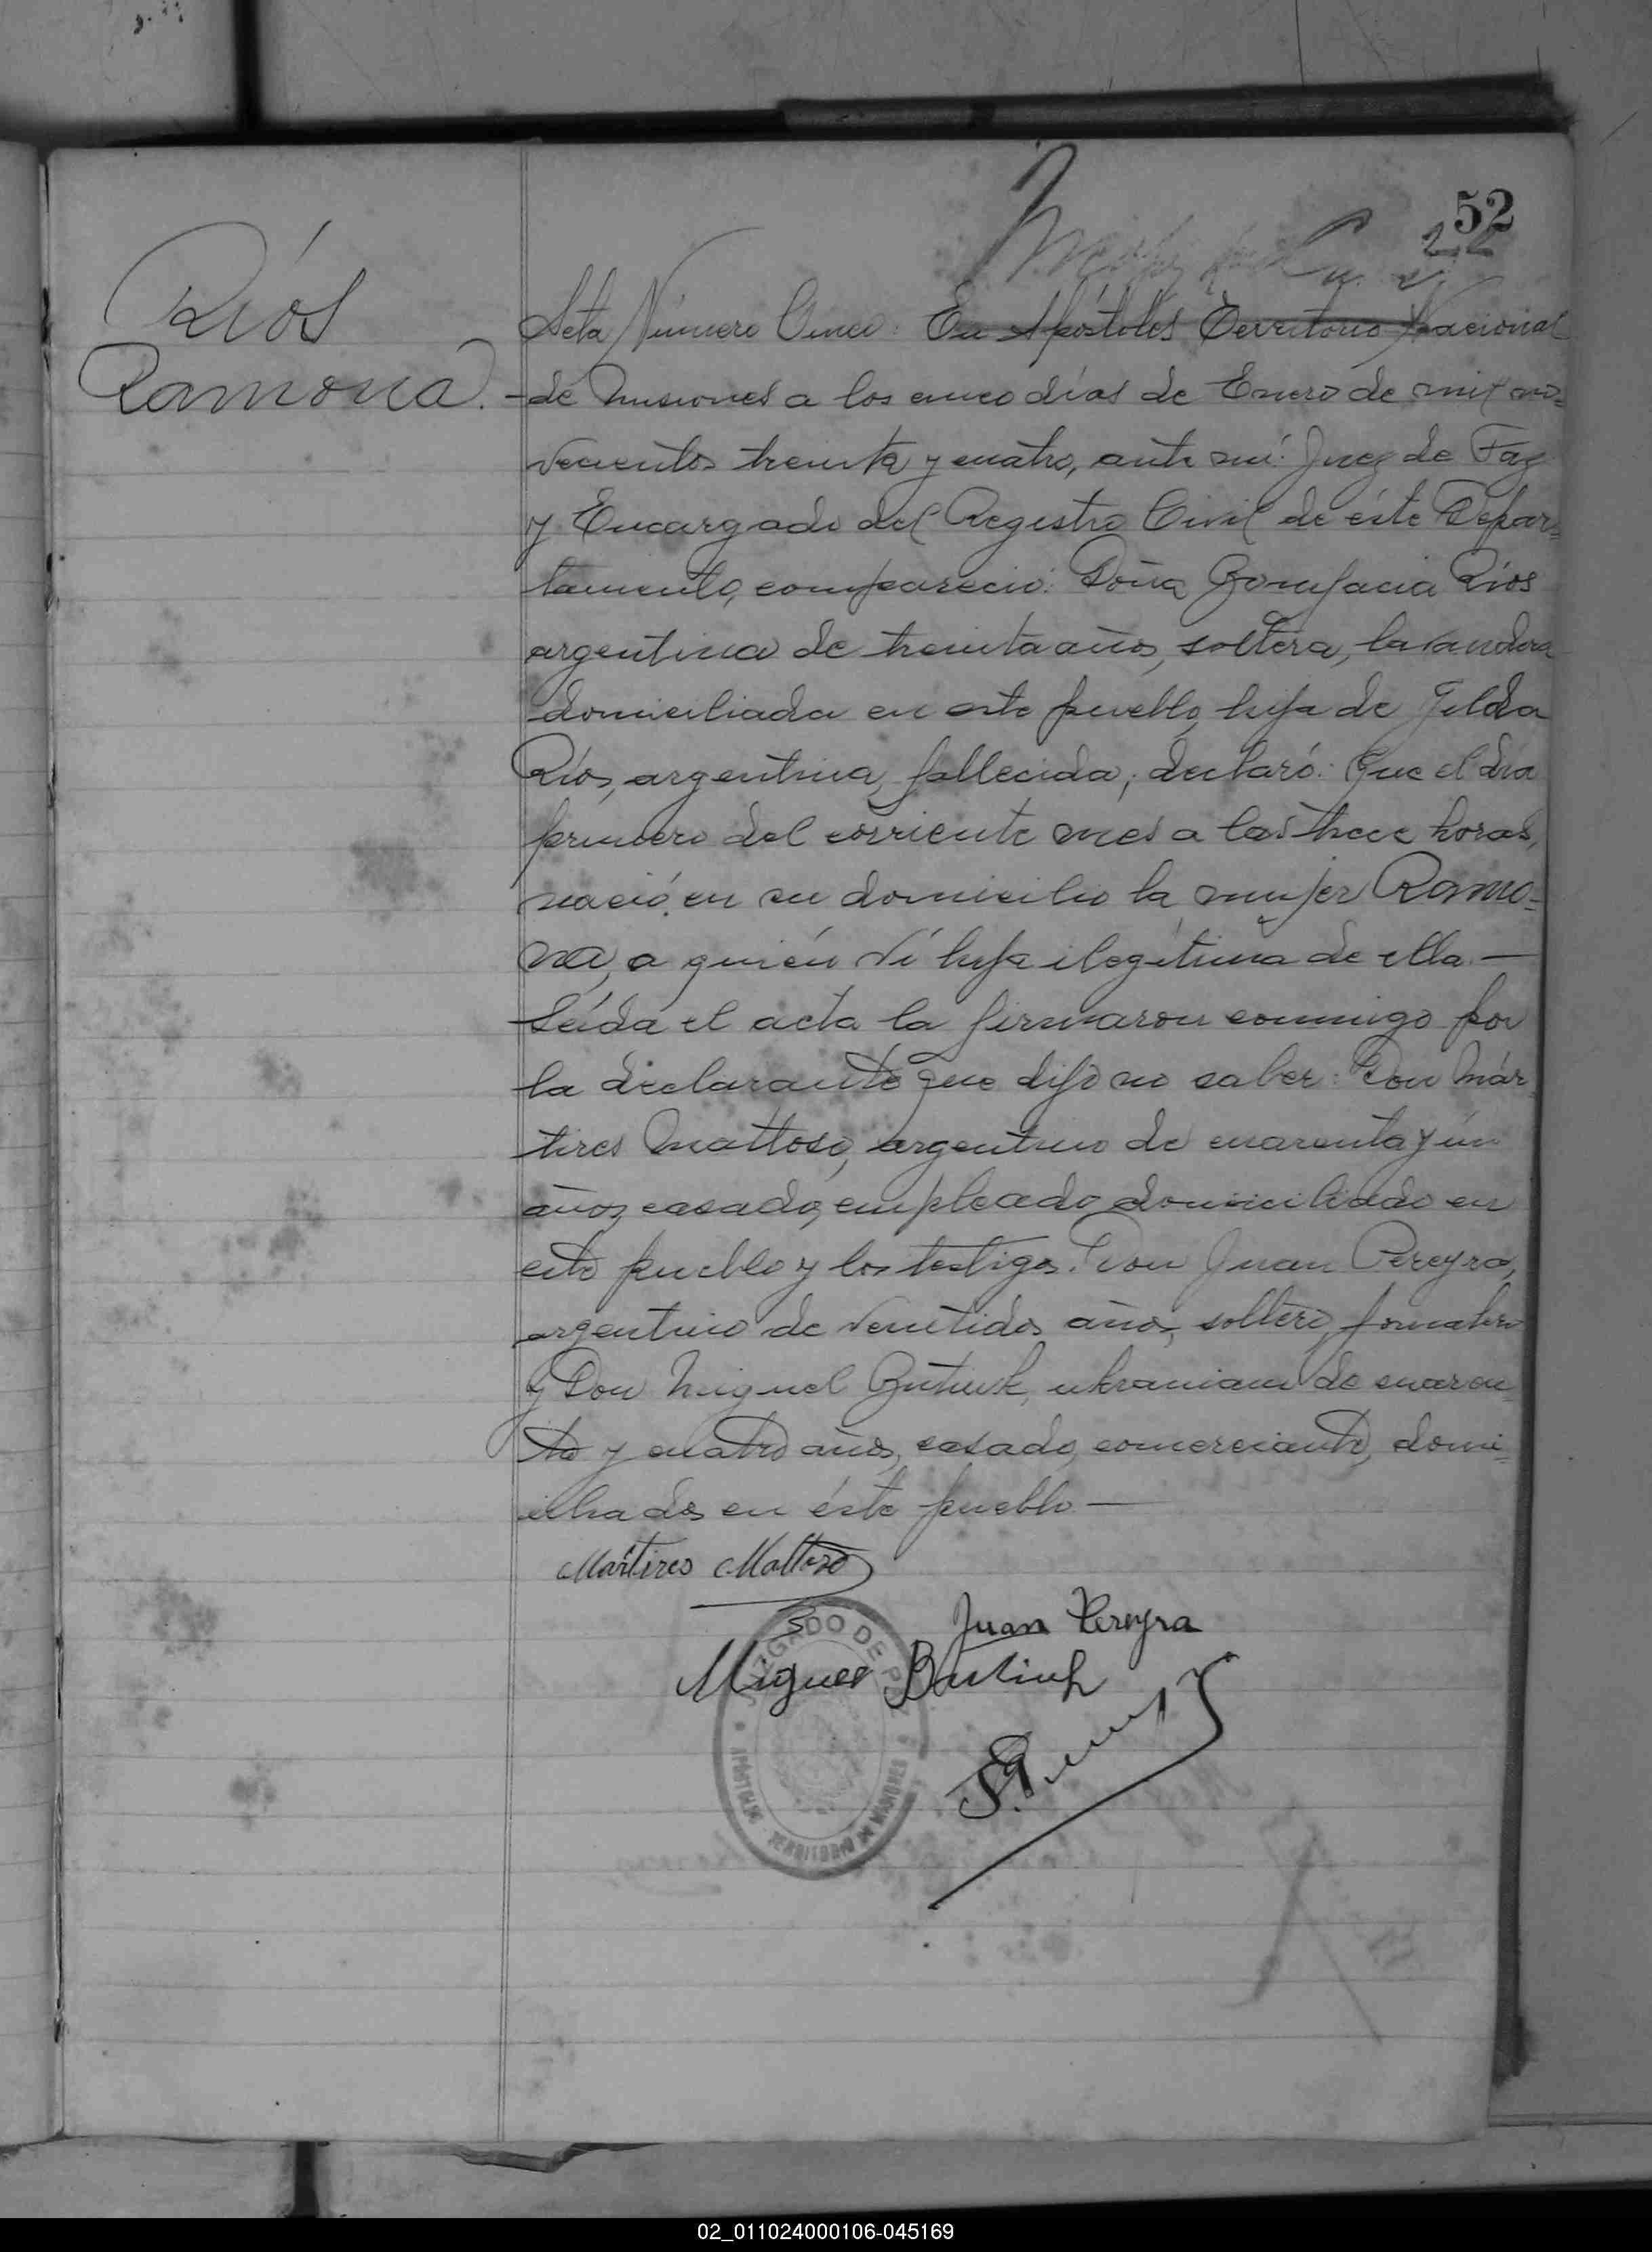 52
22
Ríos
Ramona.
Acta Número Cinco: En Apóstoles Territorio Nacional
de Misiones a los cinco días de Enero de mil no=
vecientos treinta y cuatro, ante mí: Juez de Paz
y Encargado del Registro Civil de éste Depar=
tamento, compareció: Doña Bonifacia Ríos
argentina de treinta años, soltera, lavandera
domiciliada en este pueblo, hija de Gilda
Ríos, argentina, fallecida; declaró: Que el día
primero del corriente mes a las trece horas,
nació en su domicilio la mujer Ramo=
na, a quién ví hija ilegítima de ella.—
Leída el acta la firmaron conmigo por
la declarante que dijo no saber: Don Már
tires Mattoso, argentino de cuarenta y ún
años, casado, empleado domiciliado en
este pueblo y los testigos: Don Juan Pereyra,
argentino de veintidos años, soltero, jornalero
y Don Miguel ukraniano de cuaren
ta y cuatro años, casado, comerciante, domi=
ciliados en éste pueblo—
Martires Mattoso
Juan Pereyra
Miguel
JUZGADO DE PAZ
APOSTOLES - TERRITORIO DE MISIONES
02_011024000106-045169